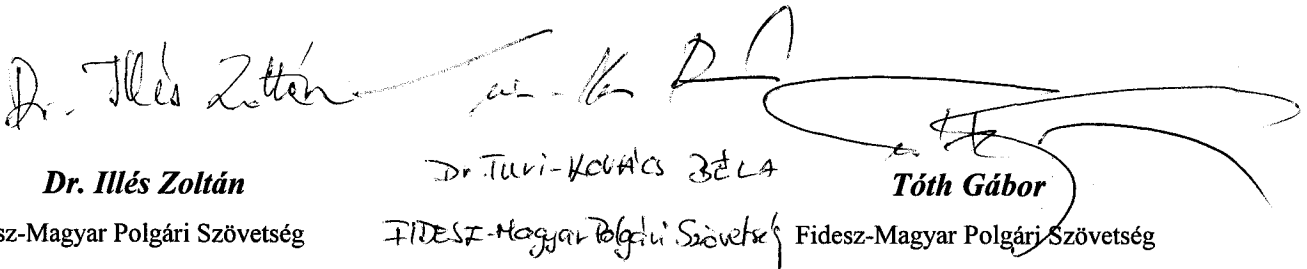 Dr. Illés Zoltán
Dr. Illés Zoltán
sz-Magyar Polgári Szövetség
Dr. Turi-Kovács BÉLA
FIDESZ-Magyar Polgári Szövetség
Tóth Gábor
Fidesz-Magyar Polgári Szövetség